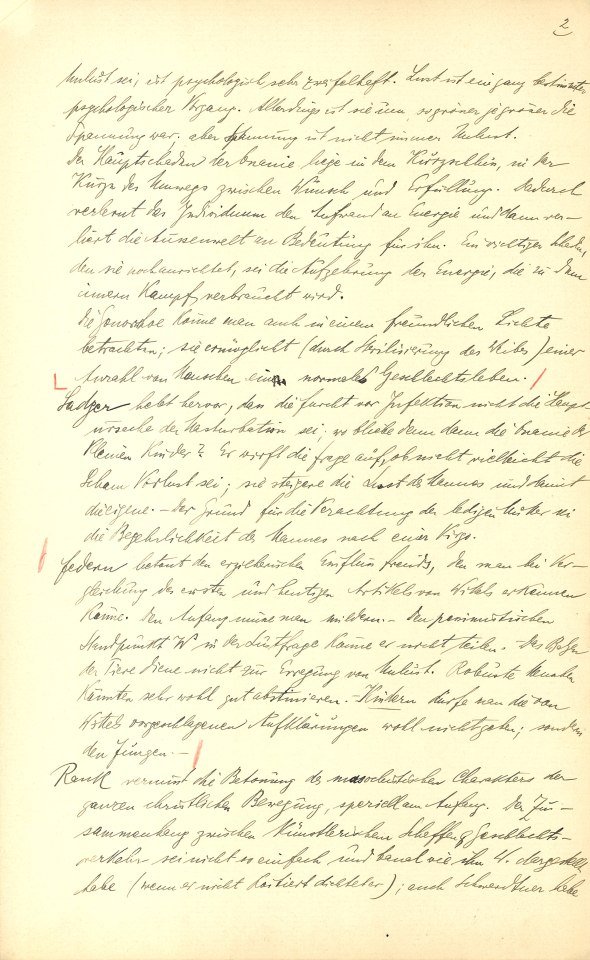 2
Unlust sei, ist psychologisch sehr zweifelhaft. Lust ist ein ganz bestimmter
psychologischer Vorgang. Allerdings ist sie um so grösser je grösser die
Spannung war, aber Spannung ist nicht immer Unlust.
Der Hauptschaden der Onanie liege in dem Kurzschluss, in der
Kürze des Umwegs zwischen Wunsch und Erfüllung. Dadurch
verlernt das Individuum den Aufwand an Energie und dann ver-
liert die Aussenwelt an Bedeutung für ihn. Ein wichtiger Schaden,
den sie noch anrichtet, sei die Aufzehrung der Energie, die zu dem
innern Kampf verbraucht wird.
Die Gonorrhoe könne man auch in einem freundlichen Lichte
betrachten; sie ermöglicht (durch Sterilisierung des Weibes) einer
Anzahl von Menschen ein normales Geschlechtsleben.
Sadger hebt hervor, dass die Furcht vor Infektion nicht die Haupt-
ursache der Masturbation sei; wo bliebe denn dann die Onanie der
kleinen Kinder? Er wirft die Frage auf, ob nicht vielleicht die
Scham Vorlust sei; sie steigere die Lust des Mannes und damit
die eigene. – Der Grund für die Verachtung der ledigen Mutter sei
die Begehrlichkeit des Mannes nach einer Virgo.
Federn betont den erzieherischen Einfluss Freuds, den man bei Ver-
gleichung des ersten und heutigen Artikels von Wittels erkennen
könne. Den Anfang müsse man mildern. – Den pessimistischen
Standpunkt W in der Lustfrage könne er nicht teilen. Das
der Tiere diene nicht zur Erregung von Unlust. Robuste Menschen
könnten sehr wohl gut abstinieren. – Kindern dürfe man die von
Wittels vorgeschlagenen Aufklärungen wohl nicht geben; sondern
den Jungen. –
Rank vermisst die Betonung des masochistischen Charakters der
ganzen christlichen Bewegung, speziell am Anfang. Der Zu-
sammenhang zwischen künstlerischem Schaffen & Geschlechts-
verkehr sei nicht so einfach und banal wie ihn W. dargestellt
habe (wenn er nicht koitiert dichtet er); auch habe